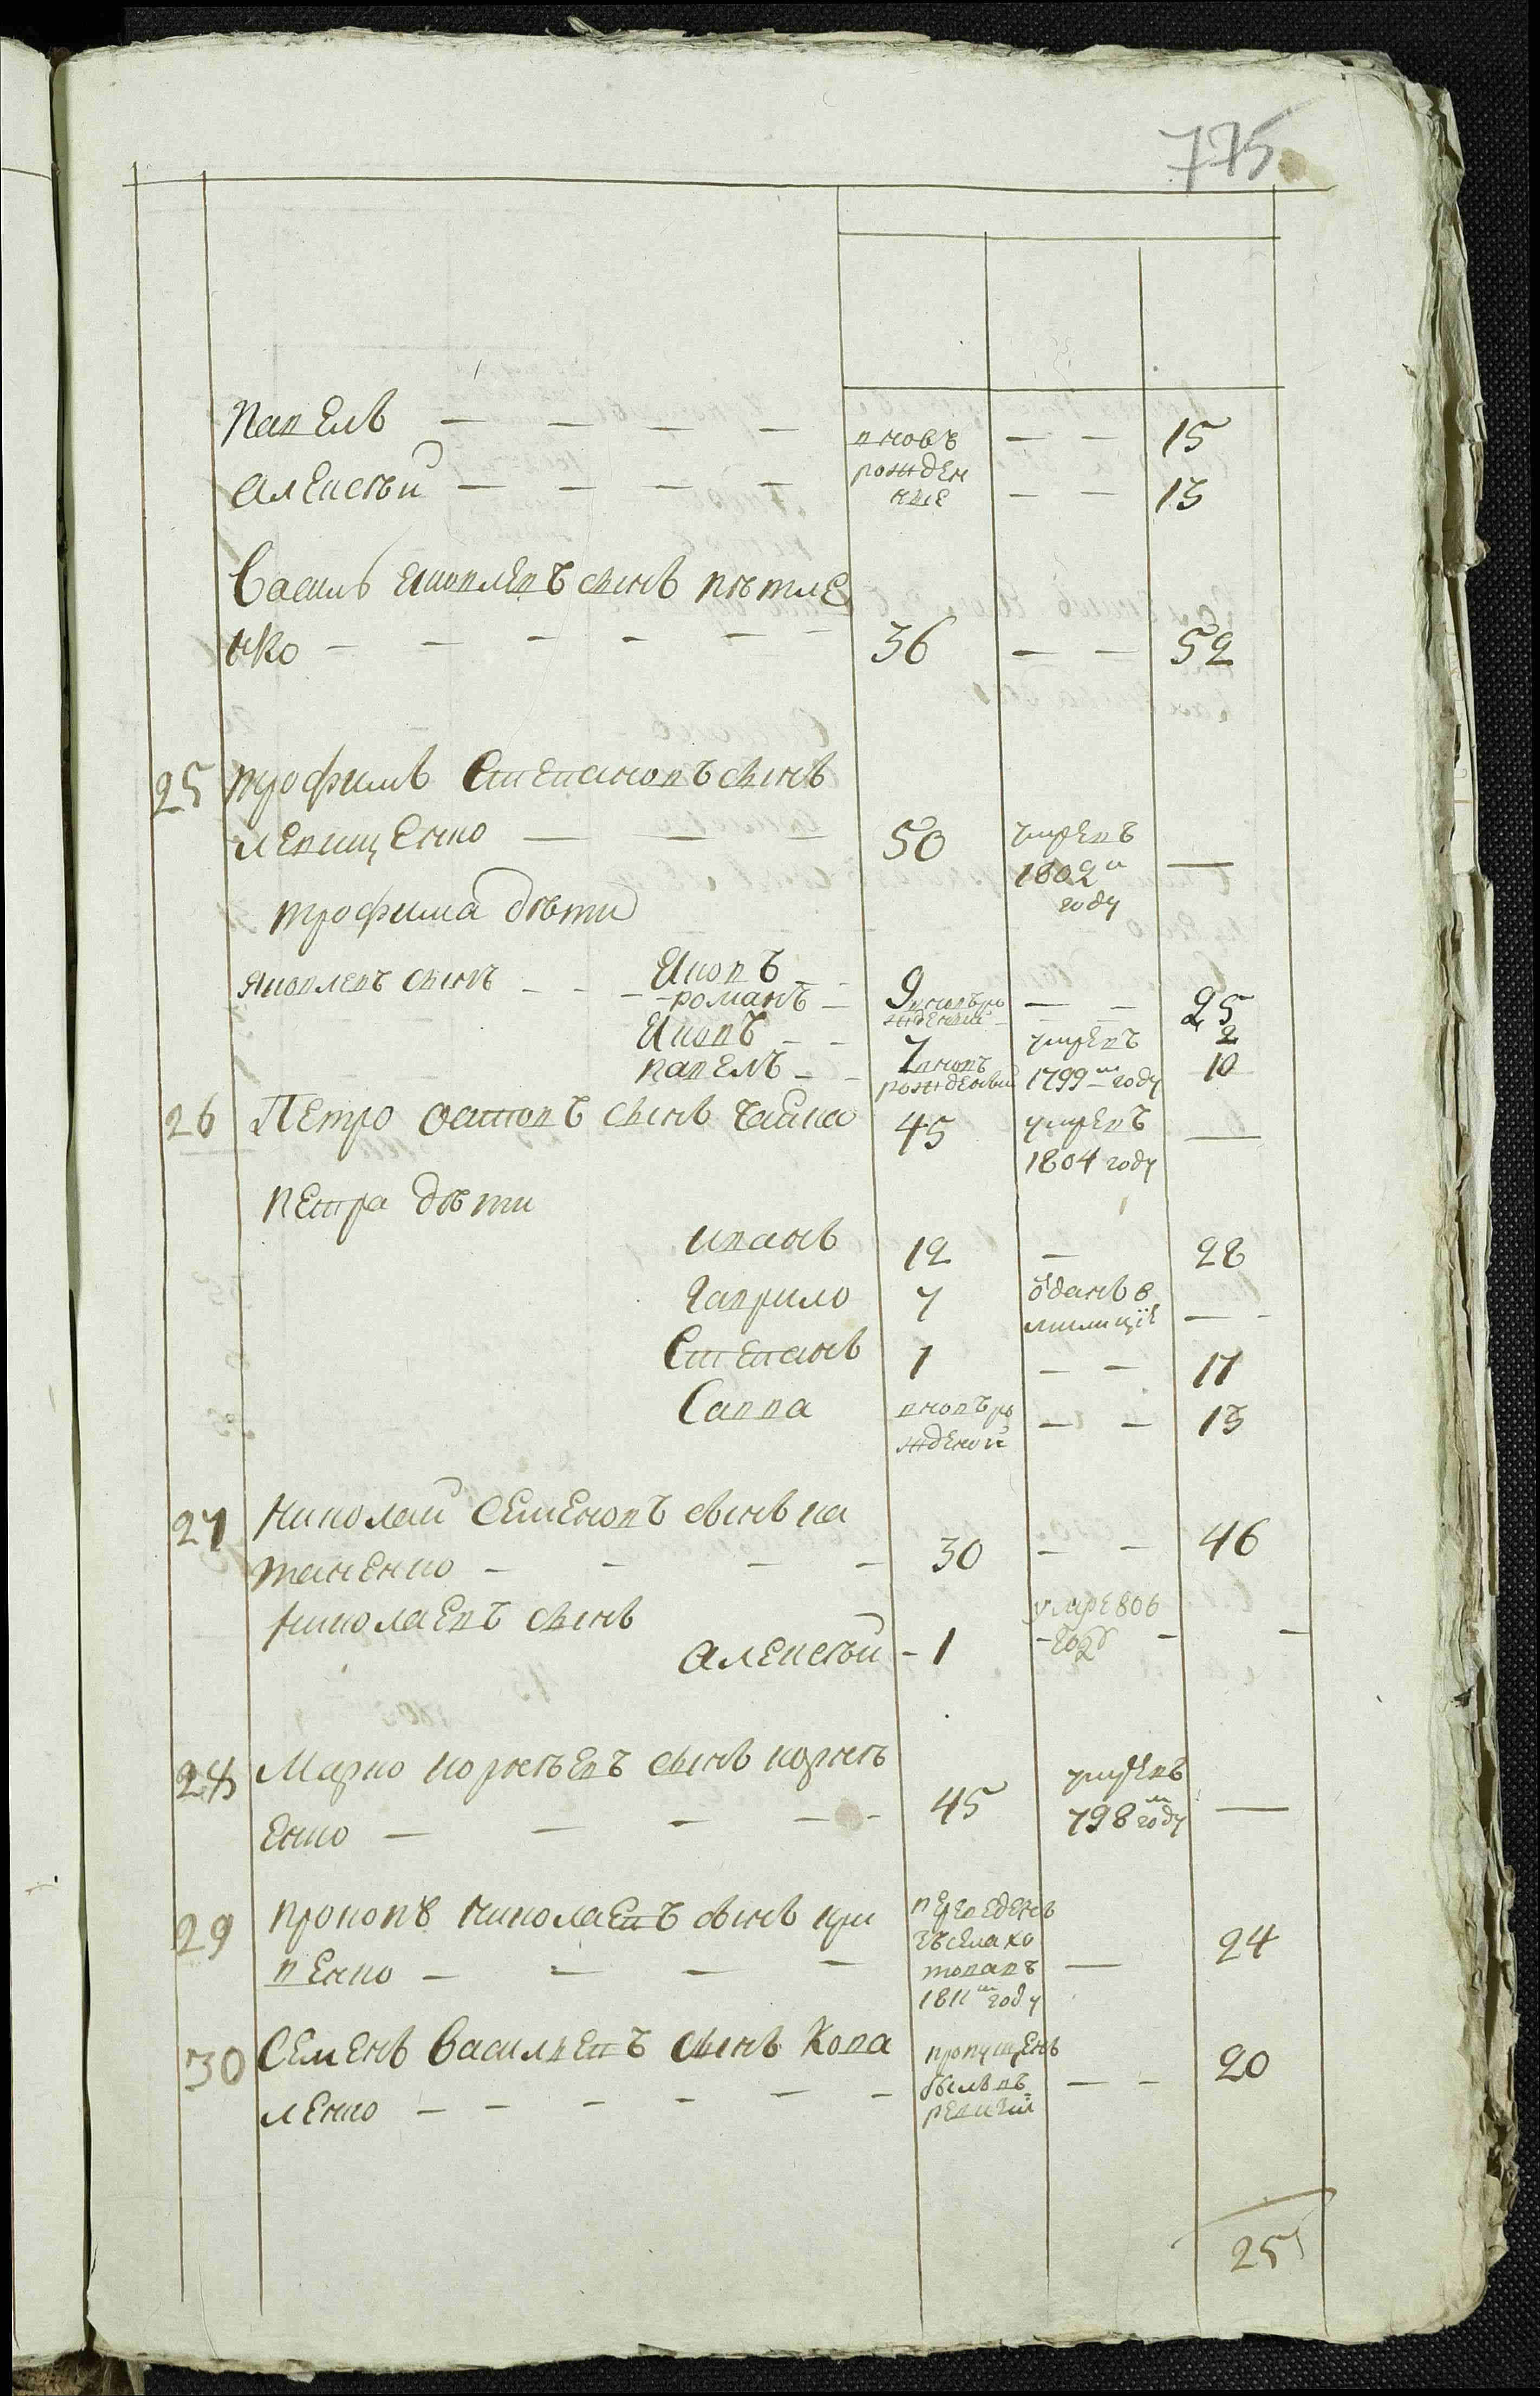 775
Павелъ — — — — вновъ — — 15
Алексѣй — — — — рожден
ные — — 13
Василь Яковлевъ сынъ Пѣтле
нко — — — — — — 36 — — 52
25 Трофимъ Степановъ сынъ
Левищенко — — — 50 умревъ
1802м —
году
Трофима дѣти
Яковъ — 9 — — 25
Яковлевъ сынъ — — — Романъ — вновъро
жденый — — 2
Яковъ — — 7 умревъ
1799м году
Павелъ — — вновъ
рожденый 10
26 Петро Остповъ сынъ Чайка 45 умревъ
1804 году —
Петра дѣти
Иванъ 12 — 28
Гаврило 7 отданъ в
милицiе — -
Степанъ 1 — — 17
Савва вновъро
жденой — — 13
27 Николай Семеновъ сынъ Ка
таненко — — — — 30 — — 46
Николаевъ сынъ
Алексѣй - 1 умре 806
- году — —
28 Марко Корнѣевъ сынъ Корнѣ
енко — — — — - 45 умревъ
798м году —
29 Прокопъ Николаевъ сынъ Кри
венко — — — — переведенъ
съ села Хо
товавъ
1811м году — 24
30 Семенъ Васильевъ сынъ Кова
ленко — — — — — — пропущенъ
былъ въ
ревизiи — — 20
25